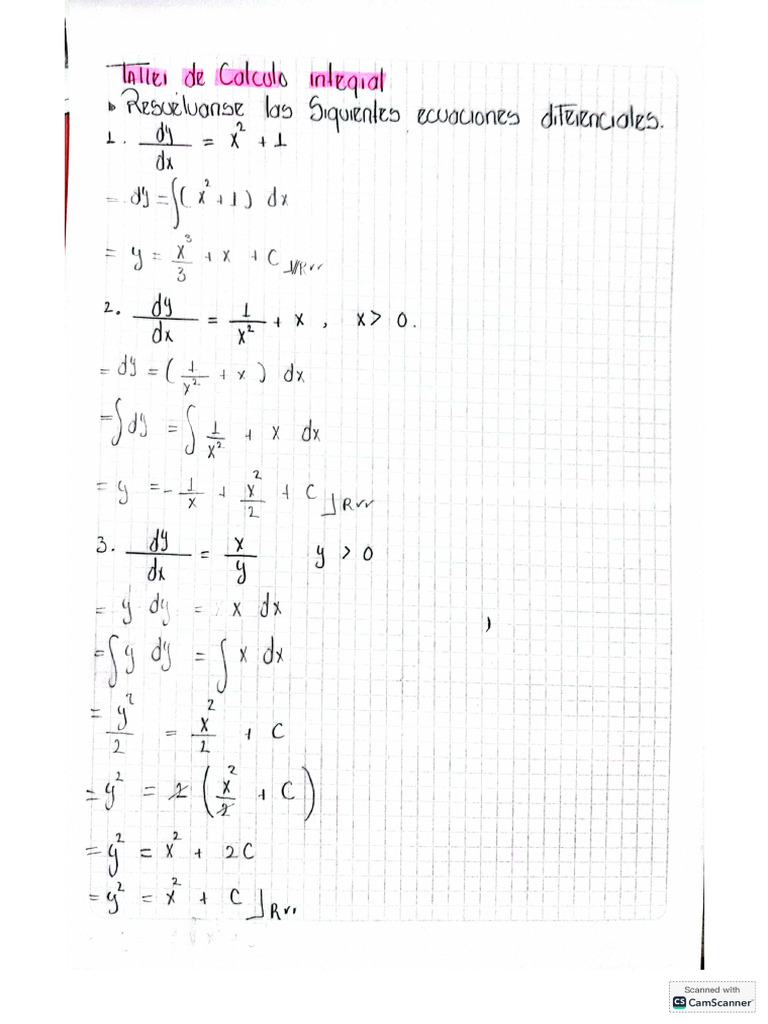 Taller de Calculo integral
Resuelvanse las Siguientes ecuaciones diferenciales.
1. dy/dx = x² + 1
= dy = ∫(x² + 1) dx
= y = x³/3 + x + C
2. dy/dx = 1/x² + x , x > 0.
= dy = (1/x² + x) dx
= ∫dy = ∫ 1/x² + x dx
= y = - 1/x + x²/2 + C
3. dy/dx = x/y y > 0
= y dy = x dx
= ∫y dy = ∫x dx
= y²/2 = x²/2 + C
= y² = 2 (x²/2 + C)
= y² = x² + 2C
= y² = x² + C
Scanned with
CS CamScanner